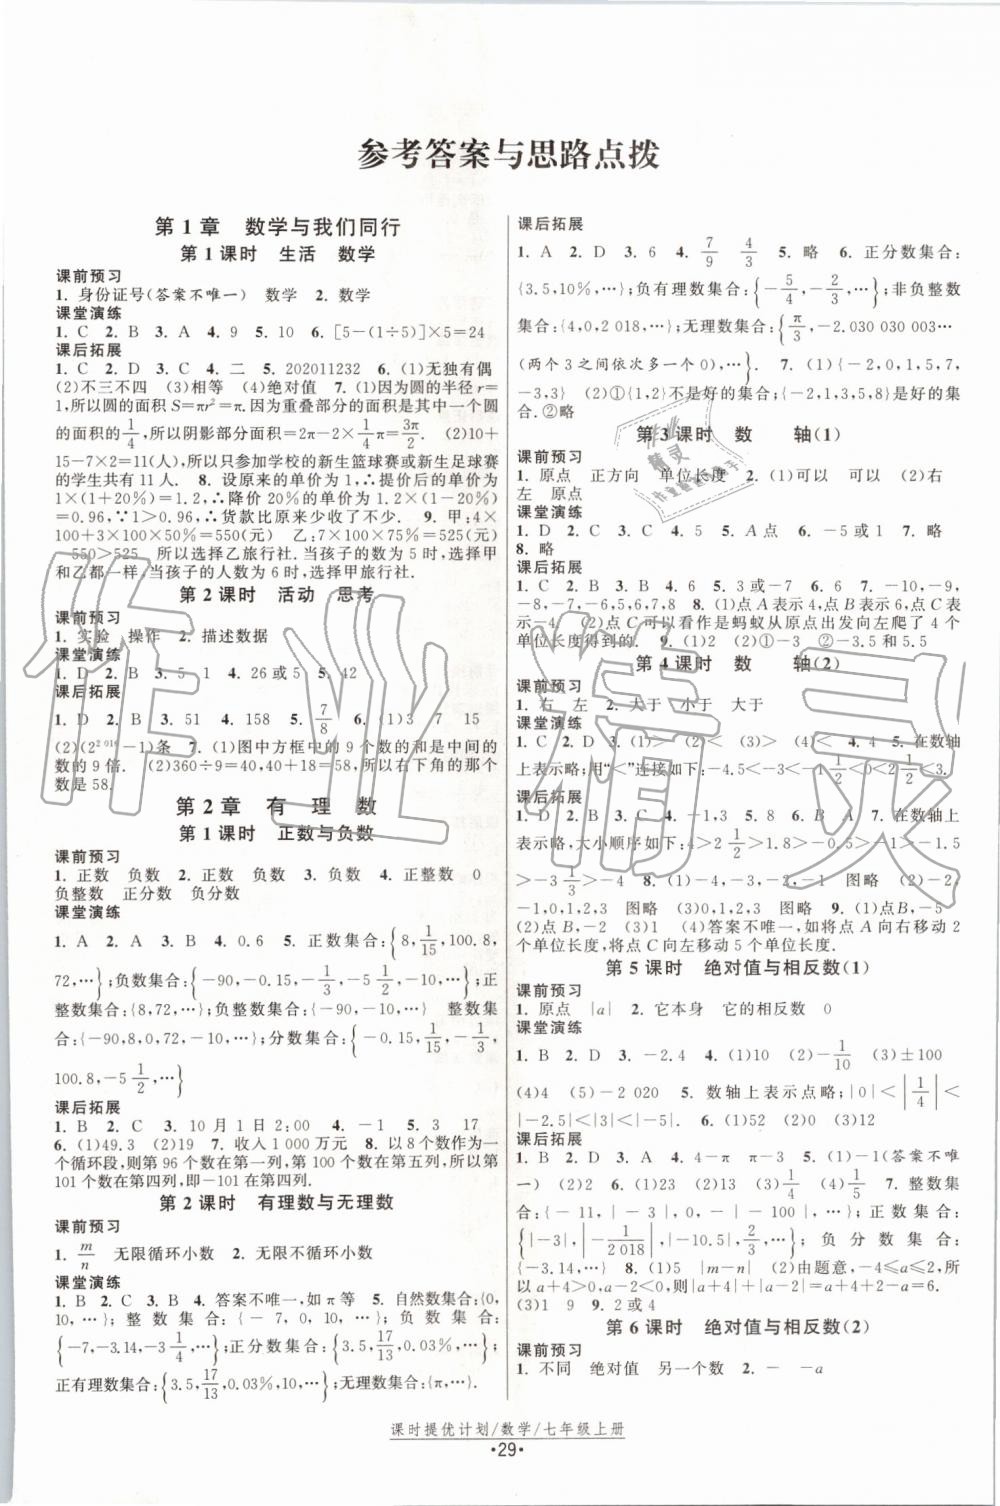 参考答案与思路点拨
第1章 数学与我们同行
第1课时 生活 数学
课前预习
1. 身份证号(答案不唯一) 数学 2. 数学
课堂演练
1. C 2. B 3. A 4. 9 5. 10 6. [5-(1÷5)]×5=24
课后拓展
1. C 2. D 3. C 4. 二 5. 202011232 6. (1)无独有偶
(2)不三不四 (3)相等 (4)绝对值 7. (1)因为圆的半径r=
1,所以圆的面积S=πr²=π.因为重叠部分的面积是其中一个圆
的面积的1/4,所以阴影部分的面积=2π-2×1/4×π=3π/2 (2)10+
15-7×2=11(人),所以只参加学校的新生篮球赛或新生足球赛
的学生共有11人. 8. 设原来的单价为1,∴提价后的单价为
1×(1+20%)=1.2,∴降价20%的单价为1.2×(1-20%)
=0.96,∵1>0.96,∴货款比原来收了不少. 9. 甲:4×
100+3×100×50%=550(元) 乙:7×100×75%=525(元)
550>525 所以选择乙旅行社.当孩子的数为5时,选择甲
和乙都一样.当孩子的人数为6时,选择甲旅行社.
第2课时 活动 思考
课前预习
1. 实验 操作 2. 描述数据
课堂演练
1. D 2. B 3. 5 1 4. 26或5 5. 42
课后拓展
1. D 2. B 3. 51 4. 158 5. 7/8 6. (1)3 7 15
(2)(2²⁰¹⁹-1)条 7. (1)图中方框中的9个数的和是中间的
数的9倍. (2)360÷9=40,40+18=58,所以右下角的那个
数是58.
第2章 有理数
第1课时 正数与负数
课前预习
1. 正数 负数 2. 正数 负数 3. 负数 4. 正整数 0
负整数 正分数 负分数
课堂演练
1. A 2. A 3. B 4. 0.6 5. 正数集合:{8,1/15,100.8,
72,…};负数集合:{-90,-0.15,-1/3,-5 1/2,-10,…};正
整数集合:{8,72,…};负整数集合:{-90,-10…} 整数集
合:{-90,8,0,72,-10,…};分数集合:{-0.15,1/15,-1/3,
100.8,-5 1/2,…}
课后拓展
1. B 2. C 3. 10月1日2:00 4. -1 5. 3 17
6. (1)49.3 (2)19 7. 收入1 000万元 8. 以8个数作为一
个循环段,则第96个数在第一列,第100个数在第五列,所以第
101个数在第四列,即-101在第四列.
第2课时 有理数与无理数
课前预习
1. m/n 无限循环小数 2. 无限不循环小数
课堂演练
1. B 2. C 3. B 4. 答案不唯一,如π等 5. 自然数集合:{0,
10,…};整数集合:{-7,0,10,…};负数集合:
{-7,-3.14,-3 1/4,…};正分数集合:{3.5,17/13,0.03%,…};
正有理数集合:{3.5,17/13,0.03%,10,…};无理数集合:{π,…}.
课后拓展
1. A 2. D 3. 6 4. 7/9 4/3 5. 略 6. 正分数集合:
{3.5,10%,…};负有理数集合:{-5/4,-2/3,…};非负整数
集合:{4,0,2 018,…};无理数集合:{π/3,-2.030 030 003…
(两个3之间依次多一个0),…} 7. (1){-2,1,5,7},{
-3,3} (2)①{1,2}不是好的集合;{-2,1,3,5,8}是好的集
合.②略
第3课时 数轴(1)
课前预习
1. 原点 正方向 单位长度 2. (1)可以 可以 (2)右
左 原点
课堂演练
1. D 2. C 3. C 4. 5 5. A点 6. -5或1 7. 略
8. 略
课后拓展
1. C 2. B 3. B 4. 6 5. 3或-7 6. 6 7. -10,-9,
-8,-7,-6,-5,5,6,7,8 8. (1)点A表示4,点B表示6,点C表
示-4 (2)点C可以看作是蚂蚁从原点出发向左爬了4个
单位长度得到的. 9. (1)2 (2)①-3 ②-3.5和5.5
第4课时 数轴(2)
课前预习
1. 右 左 2. 大于 小于 大于
课堂演练
1. C 2. D 3. (1)> (2)< (3)> (4)< 4. 4 5. 在数轴
上表示略;用“<”连接如下:-4.5<-3<-1/2<0<2 1/2<3.
课后拓展
1. D 2. B 3. C 4. -1,3 5. 8 6. B A 7. 在数轴上
表示略,大小顺序如下:4>2 1/2>1.8>-0.5>-1>-1.5
>-3 1/3>-4 8. (1)-4,-3,-2,-1 图略 (2)-2,
-1,0,1,2,3 (3)0,1,2,3 图略 9. (1)点B,-5
(2)点B,-2 (3)C (4)答案不唯一,如将点A向右移动2
个单位长度,将点C向左移动5个单位长度.
第5课时 绝对值与相反数(1)
课前预习
1. 原点 |a| 2. 它本身 它的相反数 0
课堂演练
1. B 2. D 3. -2.4 4. (1)10 (2)-1/10 (3)±100
(4)4 (5)-2 020 5. 数轴上表示点略;|0|<|1/4|<
|-2.5|<|3|<|-5| 6. (1)2 (2)12
课后拓展
1. B 2. D 3. A 4. 4-π π-3 5. (1)-1(答案不唯
一) (2)2 6. (1)23 (2)13 (3)1/4 (4)1/5 7. 整数集
合:{-11,|-3|,0,-|-100|,…};正数集合:
{|-3|,|-1/2 018|,|-10.5|,2/3,…};负分数集合:
{-3.14,…} 8. (1)5 |m-n| (2)由题意,-4≤a≤2,所
以a+4>0,a-2<0,则|a+4|+|a-2|=a+4+2-a=6.
(3)1 9 9. 2或4
第6课时 绝对值与相反数(2)
课前预习
1. 不同 绝对值 另一个数 2. - -a
课时提优计划/数学/七年级上册
·29·
作业精灵